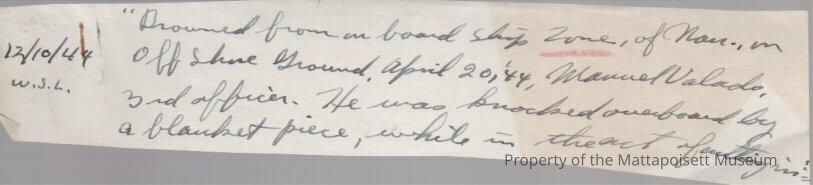 "Drowned from on board ship Zone, of Nan., on
12/10/44
W.S.L.
Off Shore Ground, April 20, '44, Manuel Valado,
3rd officer. He was knocked overboard by
a blanket piece, while in the act of
Property of the Mattapoisett Museum